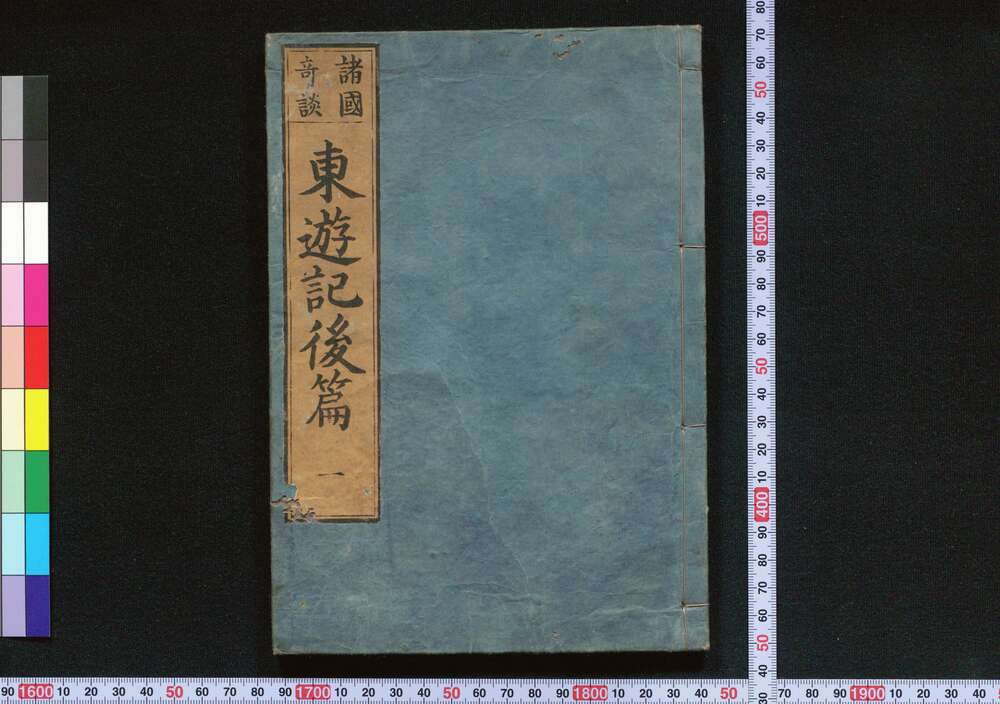 諸國
奇談
東遊記後篇
一
80
70
60
50
40
30
20
10
500
90
80
70
60
50
40
30
20
10
400
90
80
70
60
50
40
30
90 1600 10 20 30 40 50 60 70 80 90 1700 10 20 30 40 50 60 70 80 90 1800 10 20 30 40 50 70 80 90 1900 10 20 30 40